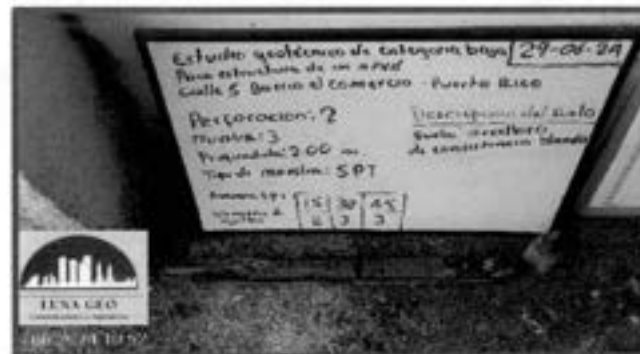 Estudio geotécnico de categoria baja 29-06-24
Para estructura de un nivel
Calle 5 Barrio el comercio - Puerto Rico
Perforacion: 2
Muestra: 3
Profundidad: 2.00 m
Tipo de muestra: SPT
Descripcion del suelo
Suelo arcilloso
de consistencia blanda
15 30 45
2 3 3
LUNA GEO